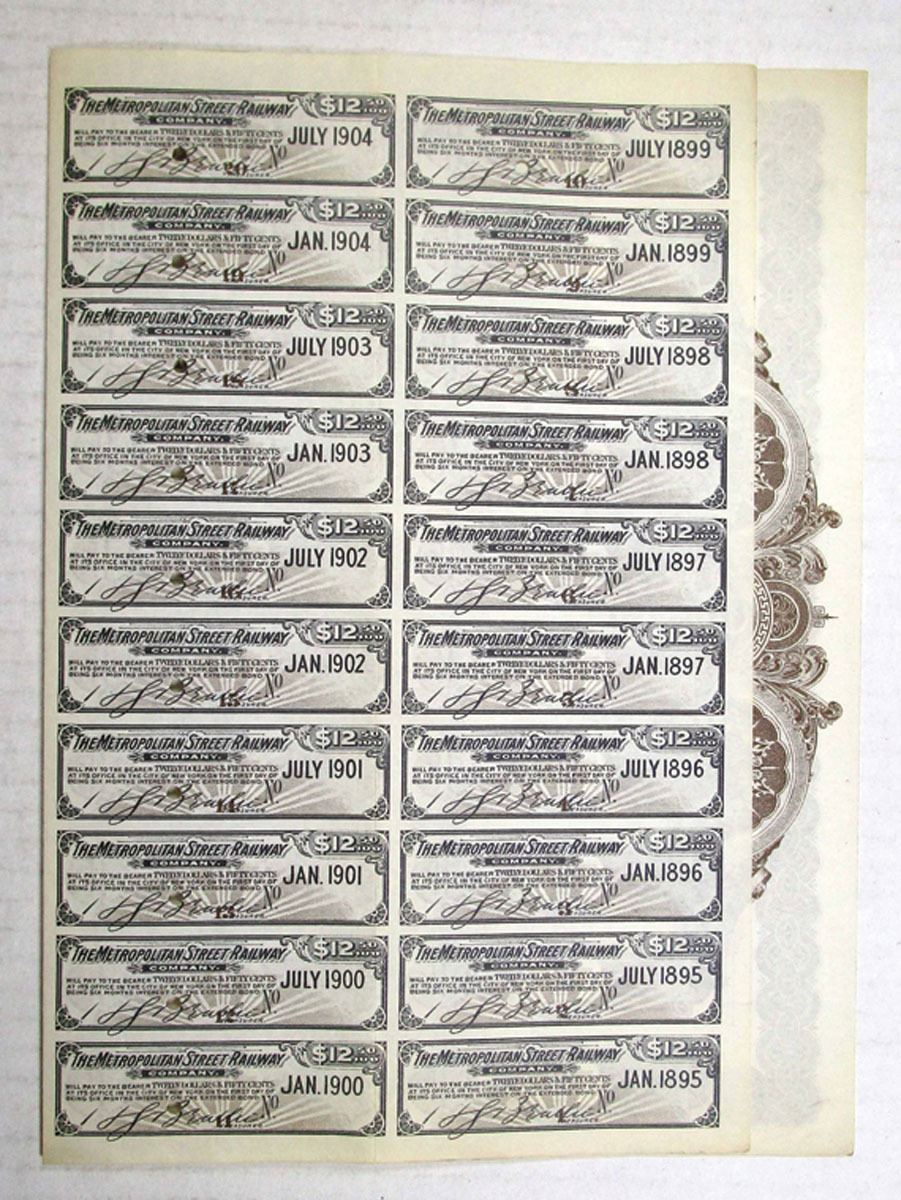 THE METROPOLITAN STREET RAILWAY $12 50/100
COMPANY.
WILL PAY TO THE BEARER TWELVE DOLLARS & FIFTY CENTS
AT ITS OFFICE IN THE CITY OF NEW YORK ON THE FIRST DAY OF JULY 1904
BEING SIX MONTHS INTEREST ON THE EXTENDED BOND No
20
THE METROPOLITAN STREET RAILWAY $12 50/100
COMPANY.
WILL PAY TO THE BEARER TWELVE DOLLARS & FIFTY CENTS
AT ITS OFFICE IN THE CITY OF NEW YORK ON THE FIRST DAY OF JULY 1899
BEING SIX MONTHS INTEREST ON THE EXTENDED BOND No
10
THE METROPOLITAN STREET RAILWAY $12 50/100
COMPANY.
WILL PAY TO THE BEARER TWELVE DOLLARS & FIFTY CENTS
AT ITS OFFICE IN THE CITY OF NEW YORK ON THE FIRST DAY OF JAN. 1904
BEING SIX MONTHS INTEREST ON THE EXTENDED BOND No
19
THE METROPOLITAN STREET RAILWAY $12 50/100
COMPANY.
WILL PAY TO THE BEARER TWELVE DOLLARS & FIFTY CENTS
AT ITS OFFICE IN THE CITY OF NEW YORK ON THE FIRST DAY OF JAN. 1899
BEING SIX MONTHS INTEREST ON THE EXTENDED BOND No
THE METROPOLITAN STREET RAILWAY $12 50/100
COMPANY.
WILL PAY TO THE BEARER TWELVE DOLLARS & FIFTY CENTS
AT ITS OFFICE IN THE CITY OF NEW YORK ON THE FIRST DAY OF JULY 1903
BEING SIX MONTHS INTEREST ON THE EXTENDED BOND No
THE METROPOLITAN STREET RAILWAY $12 50/100
COMPANY.
WILL PAY TO THE BEARER TWELVE DOLLARS & FIFTY CENTS
AT ITS OFFICE IN THE CITY OF NEW YORK ON THE FIRST DAY OF JULY 1898
BEING SIX MONTHS INTEREST ON THE EXTENDED BOND No
THE METROPOLITAN STREET RAILWAY $12 50/100
COMPANY.
WILL PAY TO THE BEARER TWELVE DOLLARS & FIFTY CENTS
AT ITS OFFICE IN THE CITY OF NEW YORK ON THE FIRST DAY OF JAN. 1903
BEING SIX MONTHS INTEREST ON THE EXTENDED BOND No
THE METROPOLITAN STREET RAILWAY $12 50/100
COMPANY.
WILL PAY TO THE BEARER TWELVE DOLLARS & FIFTY CENTS
AT ITS OFFICE IN THE CITY OF NEW YORK ON THE FIRST DAY OF JAN. 1898
BEING SIX MONTHS INTEREST ON THE EXTENDED BOND No
THE METROPOLITAN STREET RAILWAY $12 50/100
COMPANY.
WILL PAY TO THE BEARER TWELVE DOLLARS & FIFTY CENTS
AT ITS OFFICE IN THE CITY OF NEW YORK ON THE FIRST DAY OF JULY 1902
BEING SIX MONTHS INTEREST ON THE EXTENDED BOND No
THE METROPOLITAN STREET RAILWAY $12 50/100
COMPANY.
WILL PAY TO THE BEARER TWELVE DOLLARS & FIFTY CENTS
AT ITS OFFICE IN THE CITY OF NEW YORK ON THE FIRST DAY OF JULY 1897
BEING SIX MONTHS INTEREST ON THE EXTENDED BOND No
THE METROPOLITAN STREET RAILWAY $12 50/100
COMPANY.
WILL PAY TO THE BEARER TWELVE DOLLARS & FIFTY CENTS
AT ITS OFFICE IN THE CITY OF NEW YORK ON THE FIRST DAY OF JAN. 1902
BEING SIX MONTHS INTEREST ON THE EXTENDED BOND No
THE METROPOLITAN STREET RAILWAY $12 50/100
COMPANY.
WILL PAY TO THE BEARER TWELVE DOLLARS & FIFTY CENTS
AT ITS OFFICE IN THE CITY OF NEW YORK ON THE FIRST DAY OF JAN. 1897
BEING SIX MONTHS INTEREST ON THE EXTENDED BOND No
THE METROPOLITAN STREET RAILWAY $12 50/100
COMPANY.
WILL PAY TO THE BEARER TWELVE DOLLARS & FIFTY CENTS
AT ITS OFFICE IN THE CITY OF NEW YORK ON THE FIRST DAY OF JULY 1901
BEING SIX MONTHS INTEREST ON THE EXTENDED BOND No
THE METROPOLITAN STREET RAILWAY $12 50/100
COMPANY.
WILL PAY TO THE BEARER TWELVE DOLLARS & FIFTY CENTS
AT ITS OFFICE IN THE CITY OF NEW YORK ON THE FIRST DAY OF JULY 1896
BEING SIX MONTHS INTEREST ON THE EXTENDED BOND No
THE METROPOLITAN STREET RAILWAY $12 50/100
COMPANY.
WILL PAY TO THE BEARER TWELVE DOLLARS & FIFTY CENTS
AT ITS OFFICE IN THE CITY OF NEW YORK ON THE FIRST DAY OF JAN. 1901
BEING SIX MONTHS INTEREST ON THE EXTENDED BOND No
THE METROPOLITAN STREET RAILWAY $12 50/100
COMPANY.
WILL PAY TO THE BEARER TWELVE DOLLARS & FIFTY CENTS
AT ITS OFFICE IN THE CITY OF NEW YORK ON THE FIRST DAY OF JAN. 1896
BEING SIX MONTHS INTEREST ON THE EXTENDED BOND No
THE METROPOLITAN STREET RAILWAY $12 50/100
COMPANY.
WILL PAY TO THE BEARER TWELVE DOLLARS & FIFTY CENTS
AT ITS OFFICE IN THE CITY OF NEW YORK ON THE FIRST DAY OF JULY 1900
BEING SIX MONTHS INTEREST ON THE EXTENDED BOND No
THE METROPOLITAN STREET RAILWAY $12 50/100
COMPANY.
WILL PAY TO THE BEARER TWELVE DOLLARS & FIFTY CENTS
AT ITS OFFICE IN THE CITY OF NEW YORK ON THE FIRST DAY OF JULY 1895
BEING SIX MONTHS INTEREST ON THE EXTENDED BOND No
THE METROPOLITAN STREET RAILWAY $12 50/100
COMPANY.
WILL PAY TO THE BEARER TWELVE DOLLARS & FIFTY CENTS
AT ITS OFFICE IN THE CITY OF NEW YORK ON THE FIRST DAY OF JAN. 1900
BEING SIX MONTHS INTEREST ON THE EXTENDED BOND No
THE METROPOLITAN STREET RAILWAY $12 50/100
COMPANY.
WILL PAY TO THE BEARER TWELVE DOLLARS & FIFTY CENTS
AT ITS OFFICE IN THE CITY OF NEW YORK ON THE FIRST DAY OF JAN. 1895
BEING SIX MONTHS INTEREST ON THE EXTENDED BOND No